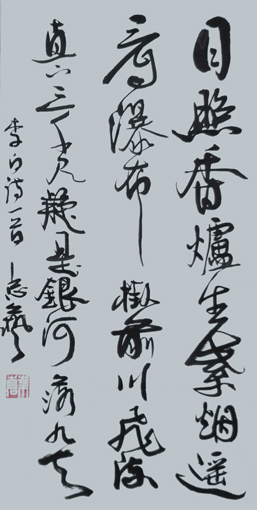 日照香爐生紫烟遥
看瀑布掛前川飛流
直下三千尺疑是銀河落九天
李白詩一首